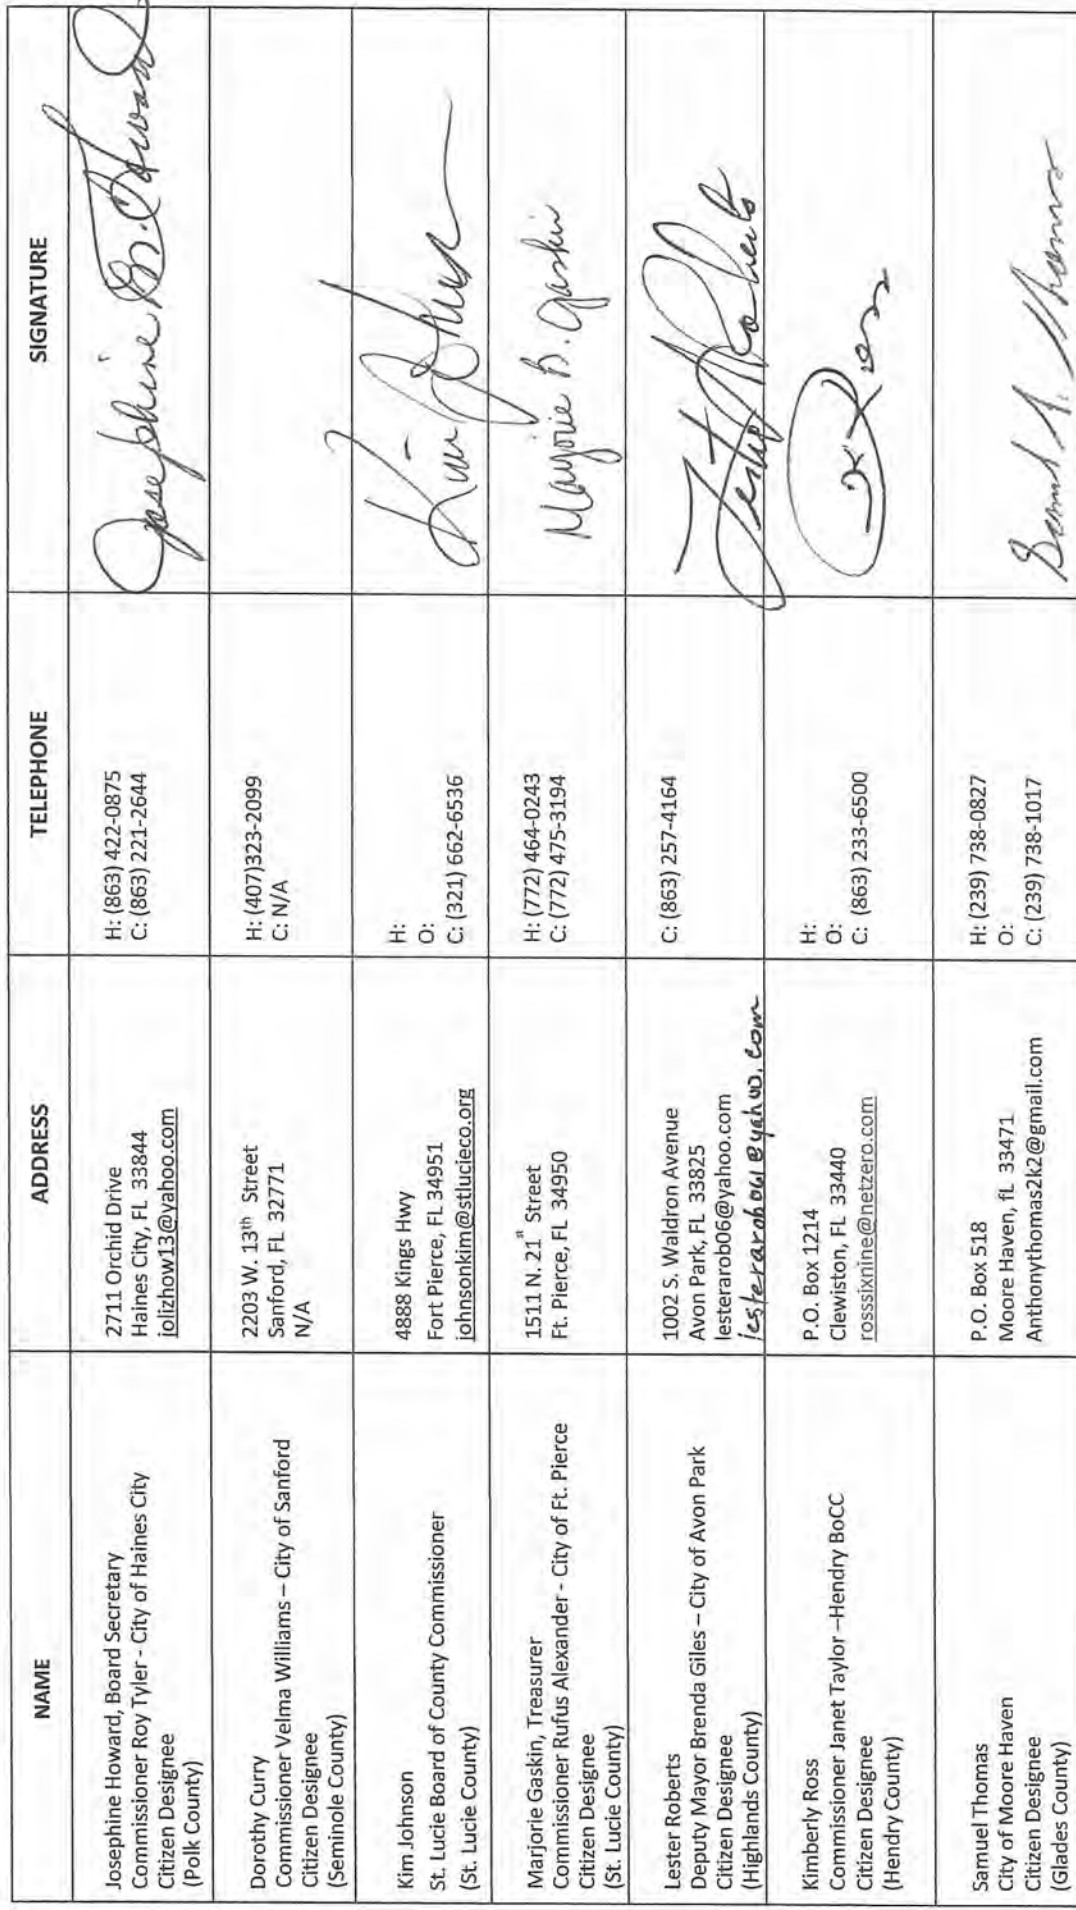 NAME
ADDRESS
TELEPHONE
SIGNATURE
Josephine Howard, Board Secretary
Commissioner Roy Tyler - City of Haines City
Citizen Designee
(Polk County)
2711 Orchid Drive
Haines City, FL 33844
jolizhow13@yahoo.com
H: (863) 422-0875
C: (863) 221-2644
Josephine G. Howard
Dorothy Curry
Commissioner Velma Williams – City of Sanford
Citizen Designee
(Seminole County)
2203 W. 13th Street
Sanford, FL 32771
N/A
H: (407)323-2099
C: N/A
Kim Johnson
St. Lucie Board of County Commissioner
(St. Lucie County)
4888 Kings Hwy
Fort Pierce, FL 34951
johnsonkim@stlucieco.org
H:
O:
C: (321) 662-6536
Kim Johnson
Marjorie Gaskin, Treasurer
Commissioner Rufus Alexander - City of Ft. Pierce
Citizen Designee
(St. Lucie County)
1511 N. 21st Street
Ft. Pierce, FL 34950
H: (772) 464-0243
C: (772) 475-3194
Marjorie B. Gaskin
Lester Roberts
Deputy Mayor Brenda Giles – City of Avon Park
Citizen Designee
(Highlands County)
1002 S. Waldron Avenue
Avon Park, FL 33825
lesterarob06@yahoo.com
C: (863) 257-4164
Lester Roberts
Kimberly Ross
Commissioner Janet Taylor –Hendry BoCC
Citizen Designee
(Hendry County)
P.O. Box 1214
Clewiston, FL 33440
rosssixnine@netzero.com
H:
O:
C: (863) 233-6500
Ross
Samuel Thomas
City of Moore Haven
Citizen Designee
(Glades County)
P.O. Box 518
Moore Haven, fL 33471
Anthonythomas2k2@gmail.com
H: (239) 738-0827
O:
C: (239) 738-1017
Thomas